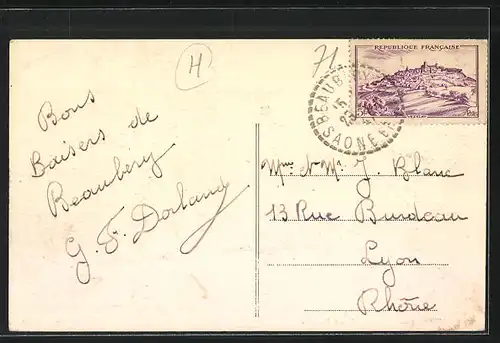 H
71
REPUBLIQUE FRANÇAISE
BEAUBERY
15
23
SAONE ET
Bons
Baisers de
Beaubery
G. F. Dorland
Mme et Mr. J. Blanc
13 Rue Burdeau
Lyon
Rhône